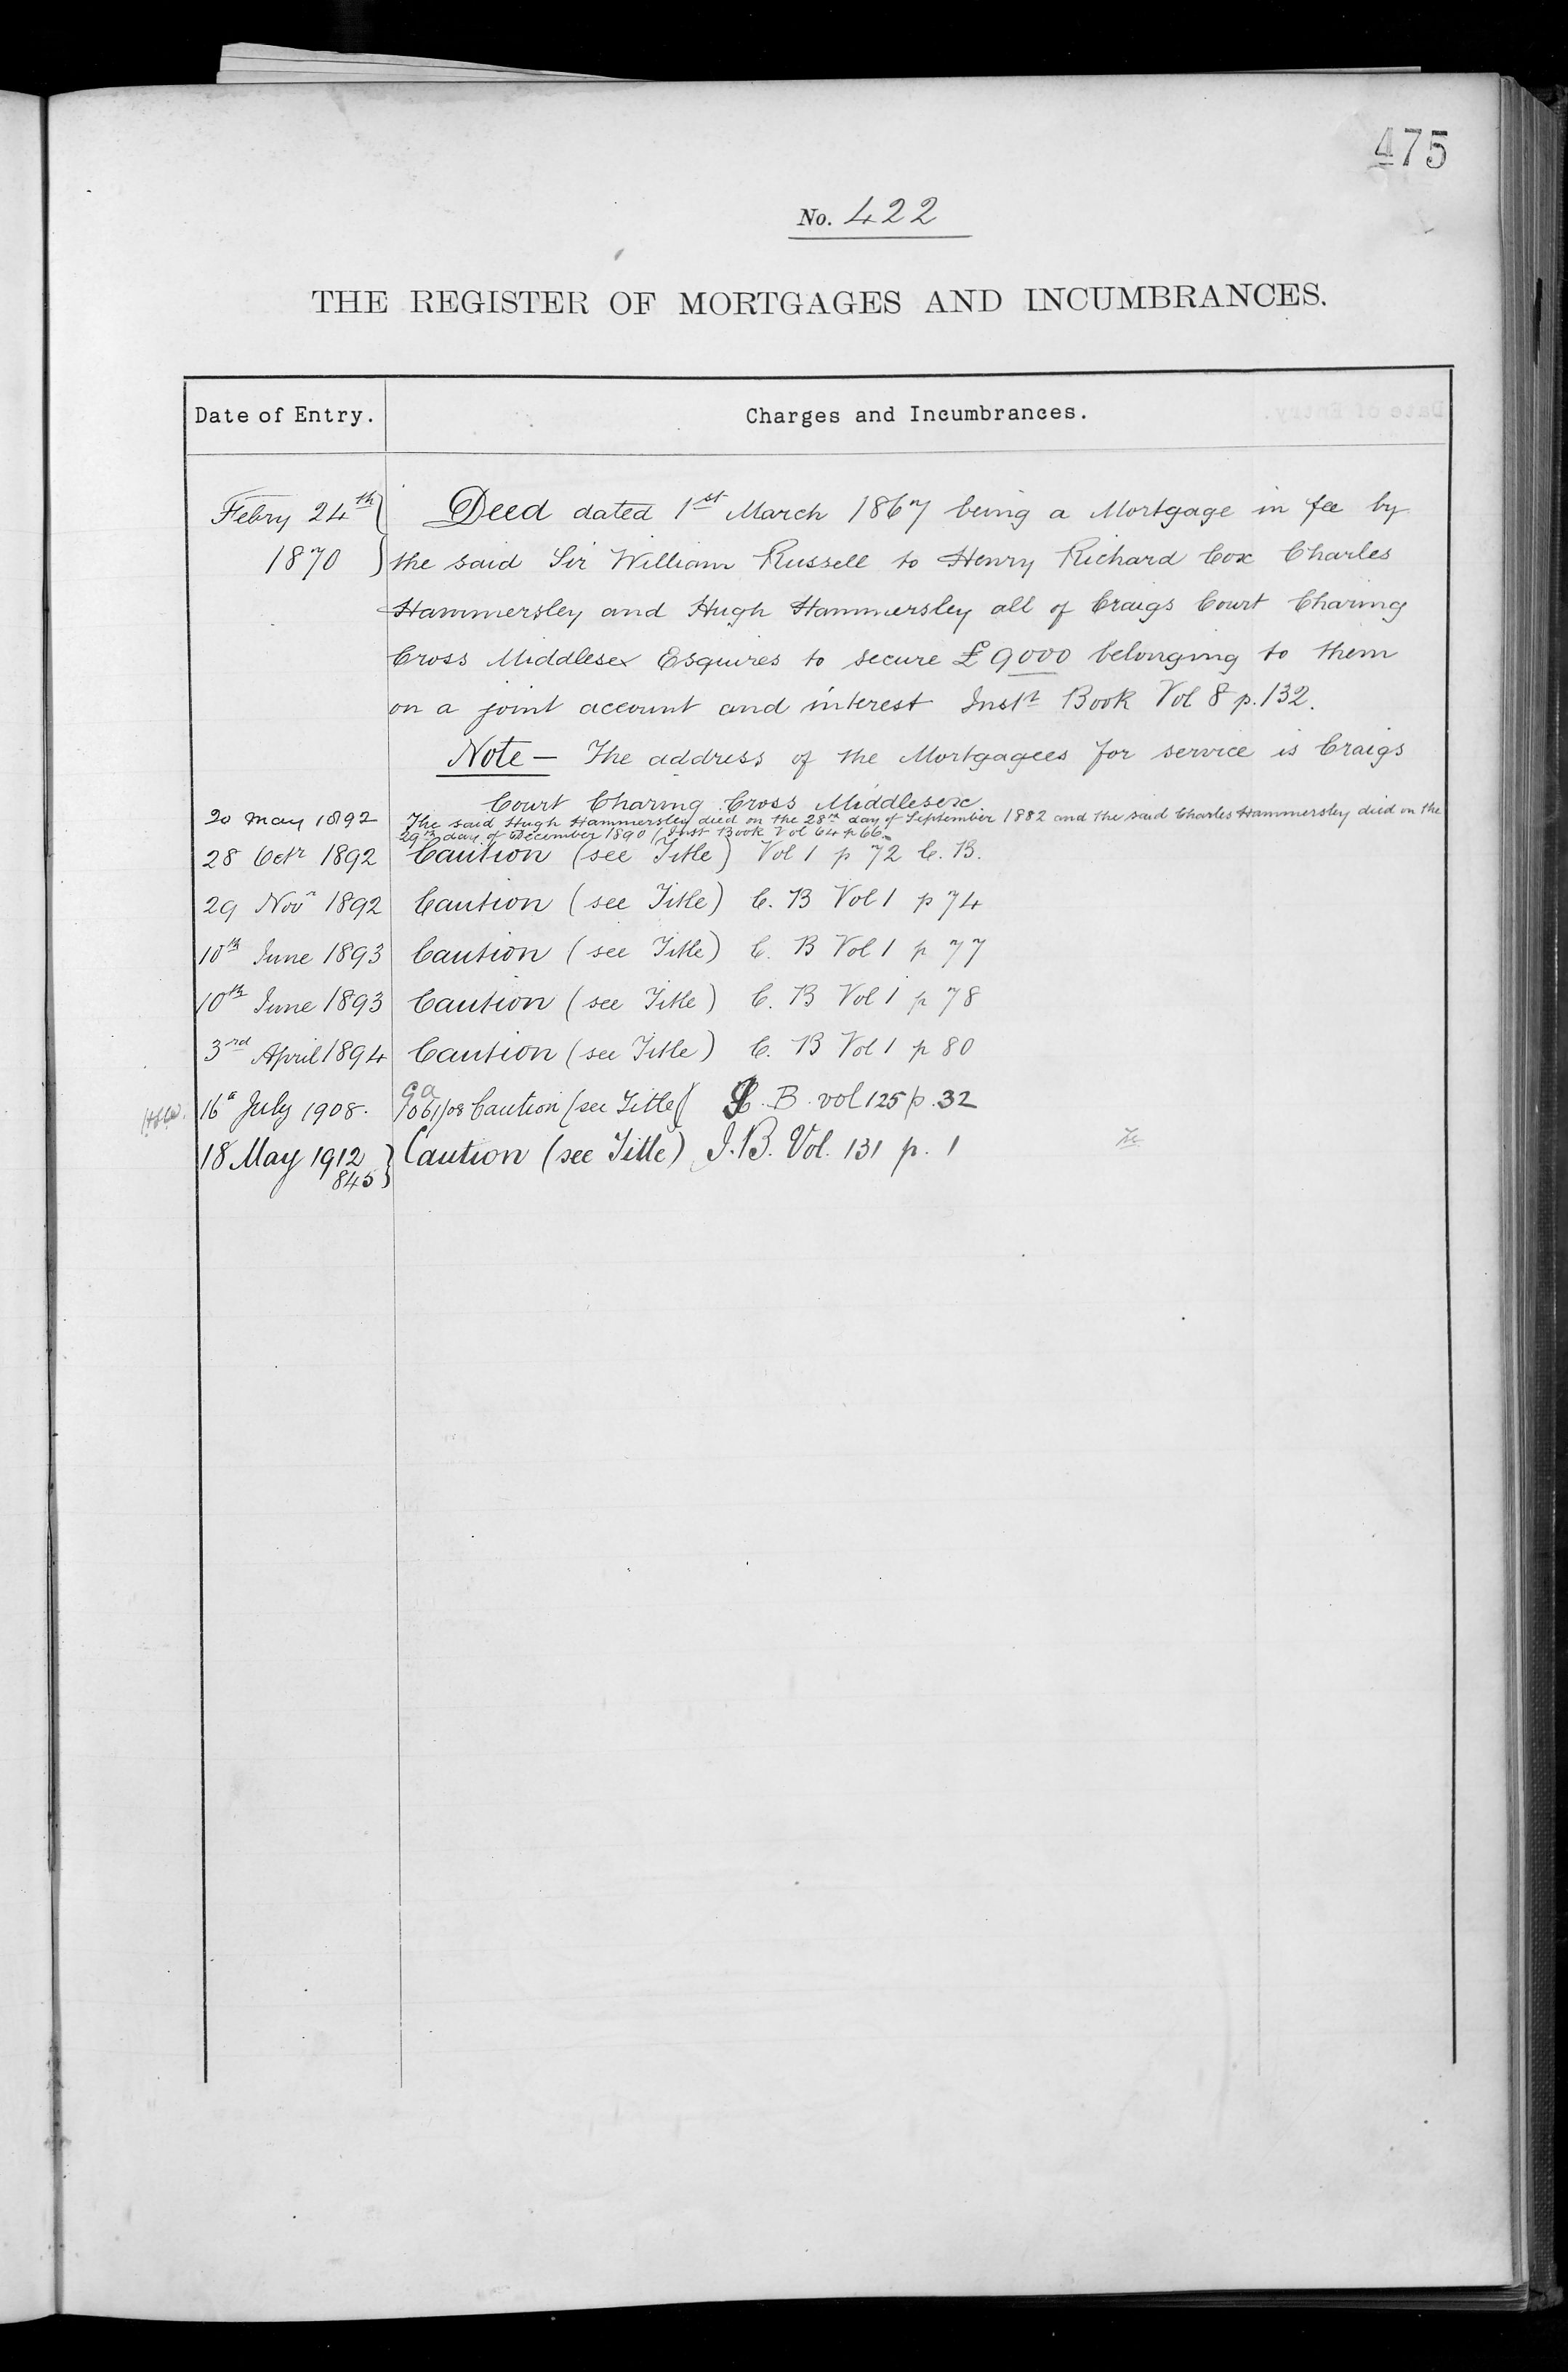 475
No. 422
THE REGISTER OF MORTGAGES AND INCUMBRANCES.
Date of Entry. Charges and Incumbrances.
Febry 24th Deed dated 1st March 1867 being a Mortgage in fee by
1870 the said Sir William Russell to Henry Richard Cox Charles
Hammersley and Hugh Hammersley all of Craigs Court Charing
Cross Middlesex Esquires to secure £9000 belonging to them
on a joint account and interest Inst Book Vol 8 p. 132.
Note — The address of the Mortgagees for service is Craigs
Court Charing Cross Middlesex.
20 May 1892 The said Hugh Hammersley died on the 28th day of September 1882 and the said Charles Hammersley died on the
29th day of December 1890 (Inst Book Vol 64 p 66
28 Octr 1892 Caution (see Title) Vol 1 p 72 C. B.
29 Novr 1892 Caution (see Title) C. B Vol 1 p 74
10th June 1893 Caution (see Title) C. B Vol 1 p 77
10th June 1893 Caution (see Title) C. B Vol 1 p 78
3rd April 1894 Caution (see Title) C. B Vol 1 p 80
16 July 1908. 1061/08 Caution (see Title) B. vol 125 p. 32
18 May 1912 Caution (see Title) I.B. Vol. 131 p. 1
845